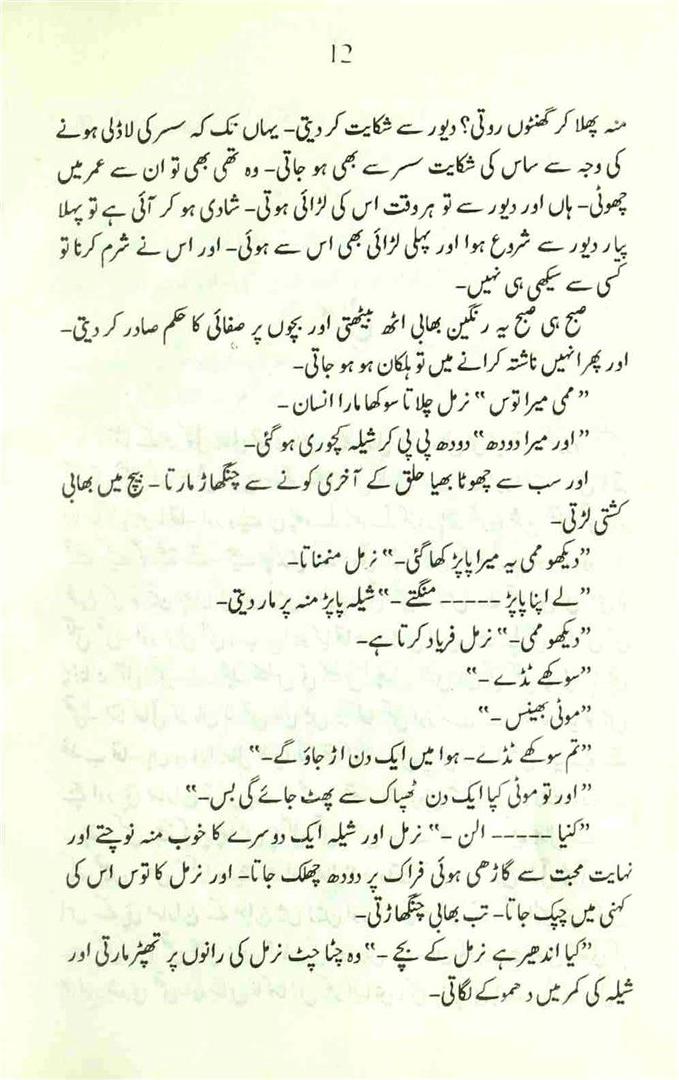 12
منہ پھلا کر گھنٹوں روتی؟ دیور سے شکایت کر دیتی۔ یہاں تک کہ سسر کی لاڈلی ہونے
کی وجہ سے ساس کی شکایت سسر سے بھی ہو جاتی۔ وہ تھی بھی تو ان سے عمر میں
چھوٹی۔ ہاں اور دیور سے تو ہر وقت اس کی لڑائی ہوتی۔ شادی ہو کر آئی ہے تو پہلا
پیار دیور سے شروع ہوا اور پہلی لڑائی بھی اس سے ہوئی۔ اور اس نے شرم کرنا تو
کسی سے سیکھی ہی نہیں۔
صبح ہی صبح یہ رنگین بھابی اٹھ بیٹھتی اور بچوں پر صفائی کا حکم صادر کر دیتی۔
اور پھر انہیں ناشتہ کرانے میں تو ہلکان ہو ہو جاتی۔
”ممی میرا توس“ نرمل چلاتا سوکھا مارا انسان۔
”اور میرا دودھ“ دودھ پی پی کر شیلہ کچوری ہو گئی۔
اور سب سے چھوٹا بھیا حلق کے آخری کونے سے چنگھاڑ مارتا۔ بیچ میں بھابی
کشتی لڑتی۔
”دیکھو ممی یہ میرا پاپڑ کھا گئی۔“ نرمل منمناتا۔
”لے اپنا پاپڑ ----- منگتے۔“ شیلہ پاپڑ منہ پر مار دیتی۔
”دیکھو ممی۔“ نرمل فریاد کرتا ہے۔
”سوکھے ٹڈے۔“
”موٹی بھینس۔“
”تم سوکھے ٹڈے۔ ہوا میں ایک دن اڑ جاؤ گے۔“
”اور تو موٹی کپا ایک دن ٹھپاک سے پھٹ جائے گی بس۔“
”کنیا ----- الن۔“ نرمل اور شیلہ ایک دوسرے کا خوب منہ نوچتے اور
نہایت محبت سے گاڑھی ہوئی فراک پر دودھ چھلک جاتا۔ اور نرمل کا توس اس کی
کہنی میں چپک جاتا۔ تب بھابی چنگھاڑتی۔
”کیا اندھیر ہے نرمل کے بچے۔“ وہ چٹا چٹ نرمل کی رانوں پر تھپڑ مارتی اور
شیلہ کی کمر میں دھموکے لگاتی۔